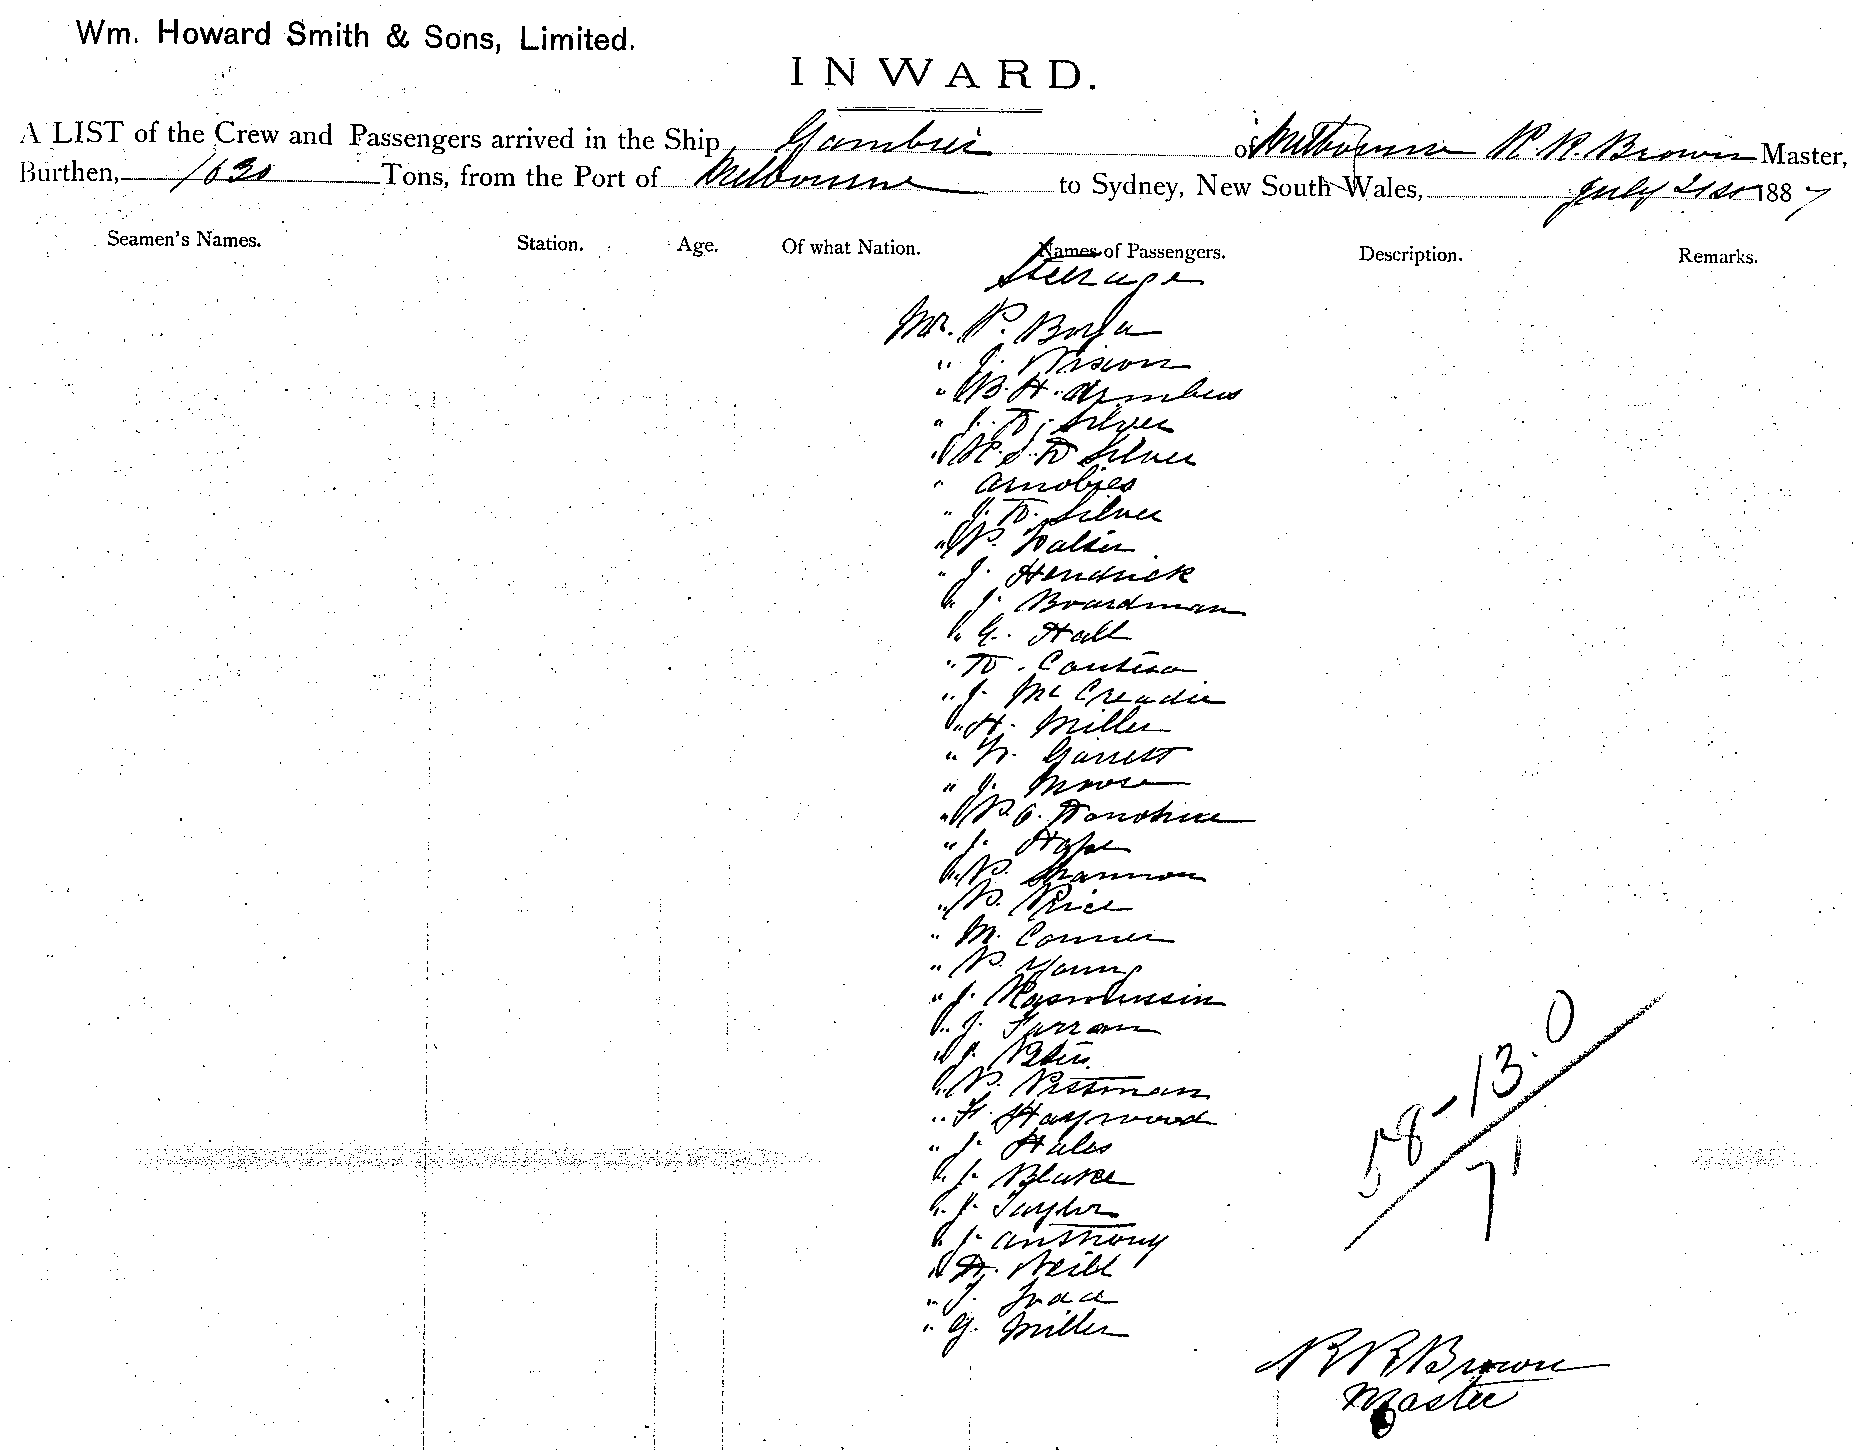 Wm. Howard Smith & Sons, Limited.
INWARD.
A LIST of the Crew and Passengers arrived in the Ship Gambier of Melbourne R. R. Brown Master,
Burthen, 1630 Tons, from the Port of Melbourne to Sydney, New South Wales, July 21st 1887
Seamen's Names. Station. Age. Of what Nation. Names of Passengers. Description. Remarks.
Steerage
Mr. P. Borja
" J.
" B. H.
" J. D. Silver
" Silver
" Arnobies
" J. D. Silver
" P.
" J. Hendrick
" J. Boardman
" G. Hall
" D.
" J. McCreadie
" H. Miller
" W. Garrett
" J. Moore
" P. O. Donohue
" J. Hope
" P. Shannon
" P. Price
" M. Conner
" P. Young
" J. Rasmussin
" J. Farran
" J.
" P. Pittman
" F. Haywood
" J. Hales
" J. Blake
" J. Taylor
" J. Anthony
" D. Neill
" T.
" G. Miller
58-13.0
71
R R Brown
Master